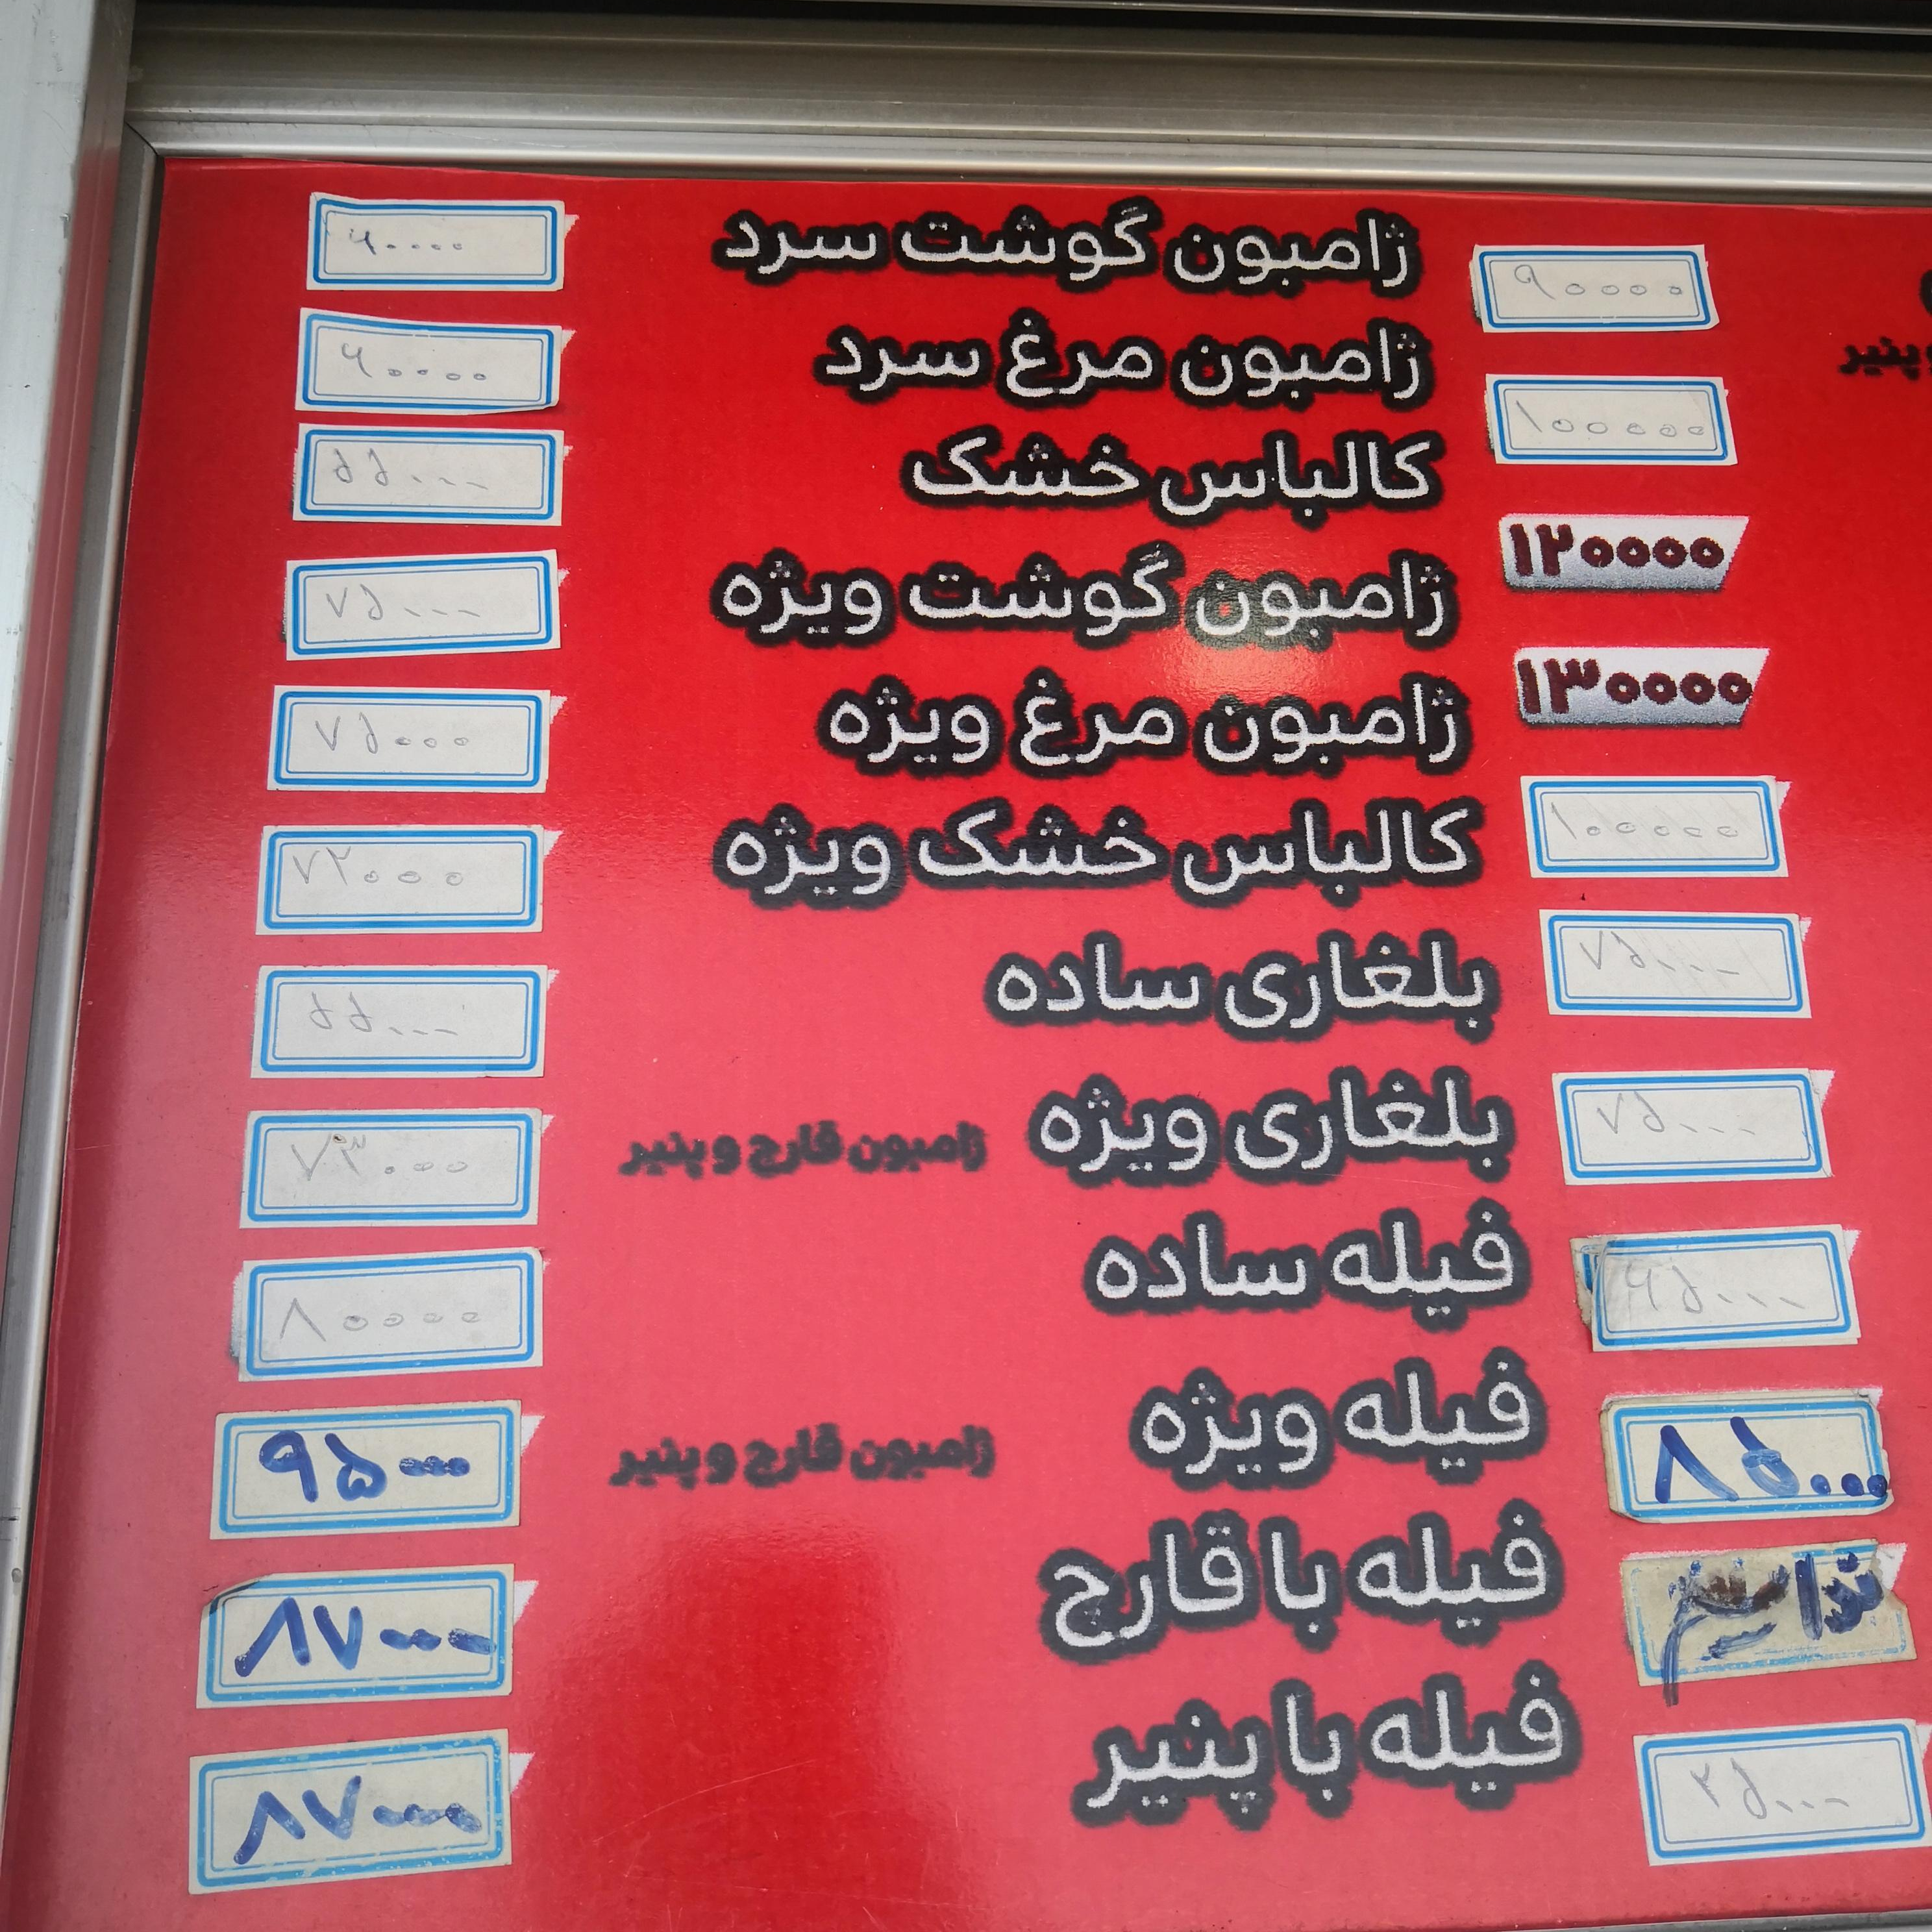 ژامبون گوشت سرد ۶۰۰۰۰
ژامبون مرغ سرد ۶۰۰۰۰
کالباس خشک ۵۵۰۰۰
ژامبون گوشت ویژه ۷۵۰۰۰
ژامبون مرغ ویژه ۷۵۰۰۰
کالباس خشک ویژه ۷۲۰۰۰
بلغاری ساده ۵۵۰۰۰
بلغاری ویژه ژامبون قارچ و پنیر ۷۳۰۰۰
فیله ساده ۸۰۰۰۰
فیله ویژه ژامبون قارچ و پنیر ۹۵۰۰۰
فیله با قارچ ۸۷۰۰۰
فیله با پنیر ۸۷۰۰۰
۹۰۰۰۰
و پنیر
۱۰۰۰۰۰
۱۲۰۰۰۰
۱۳۰۰۰۰
۱۰۰۰۰۰
۷۵۰۰۰
۷۵۰۰۰
۶۵۰۰۰
۸۵۰۰۰
نداریم
۲۵۰۰۰